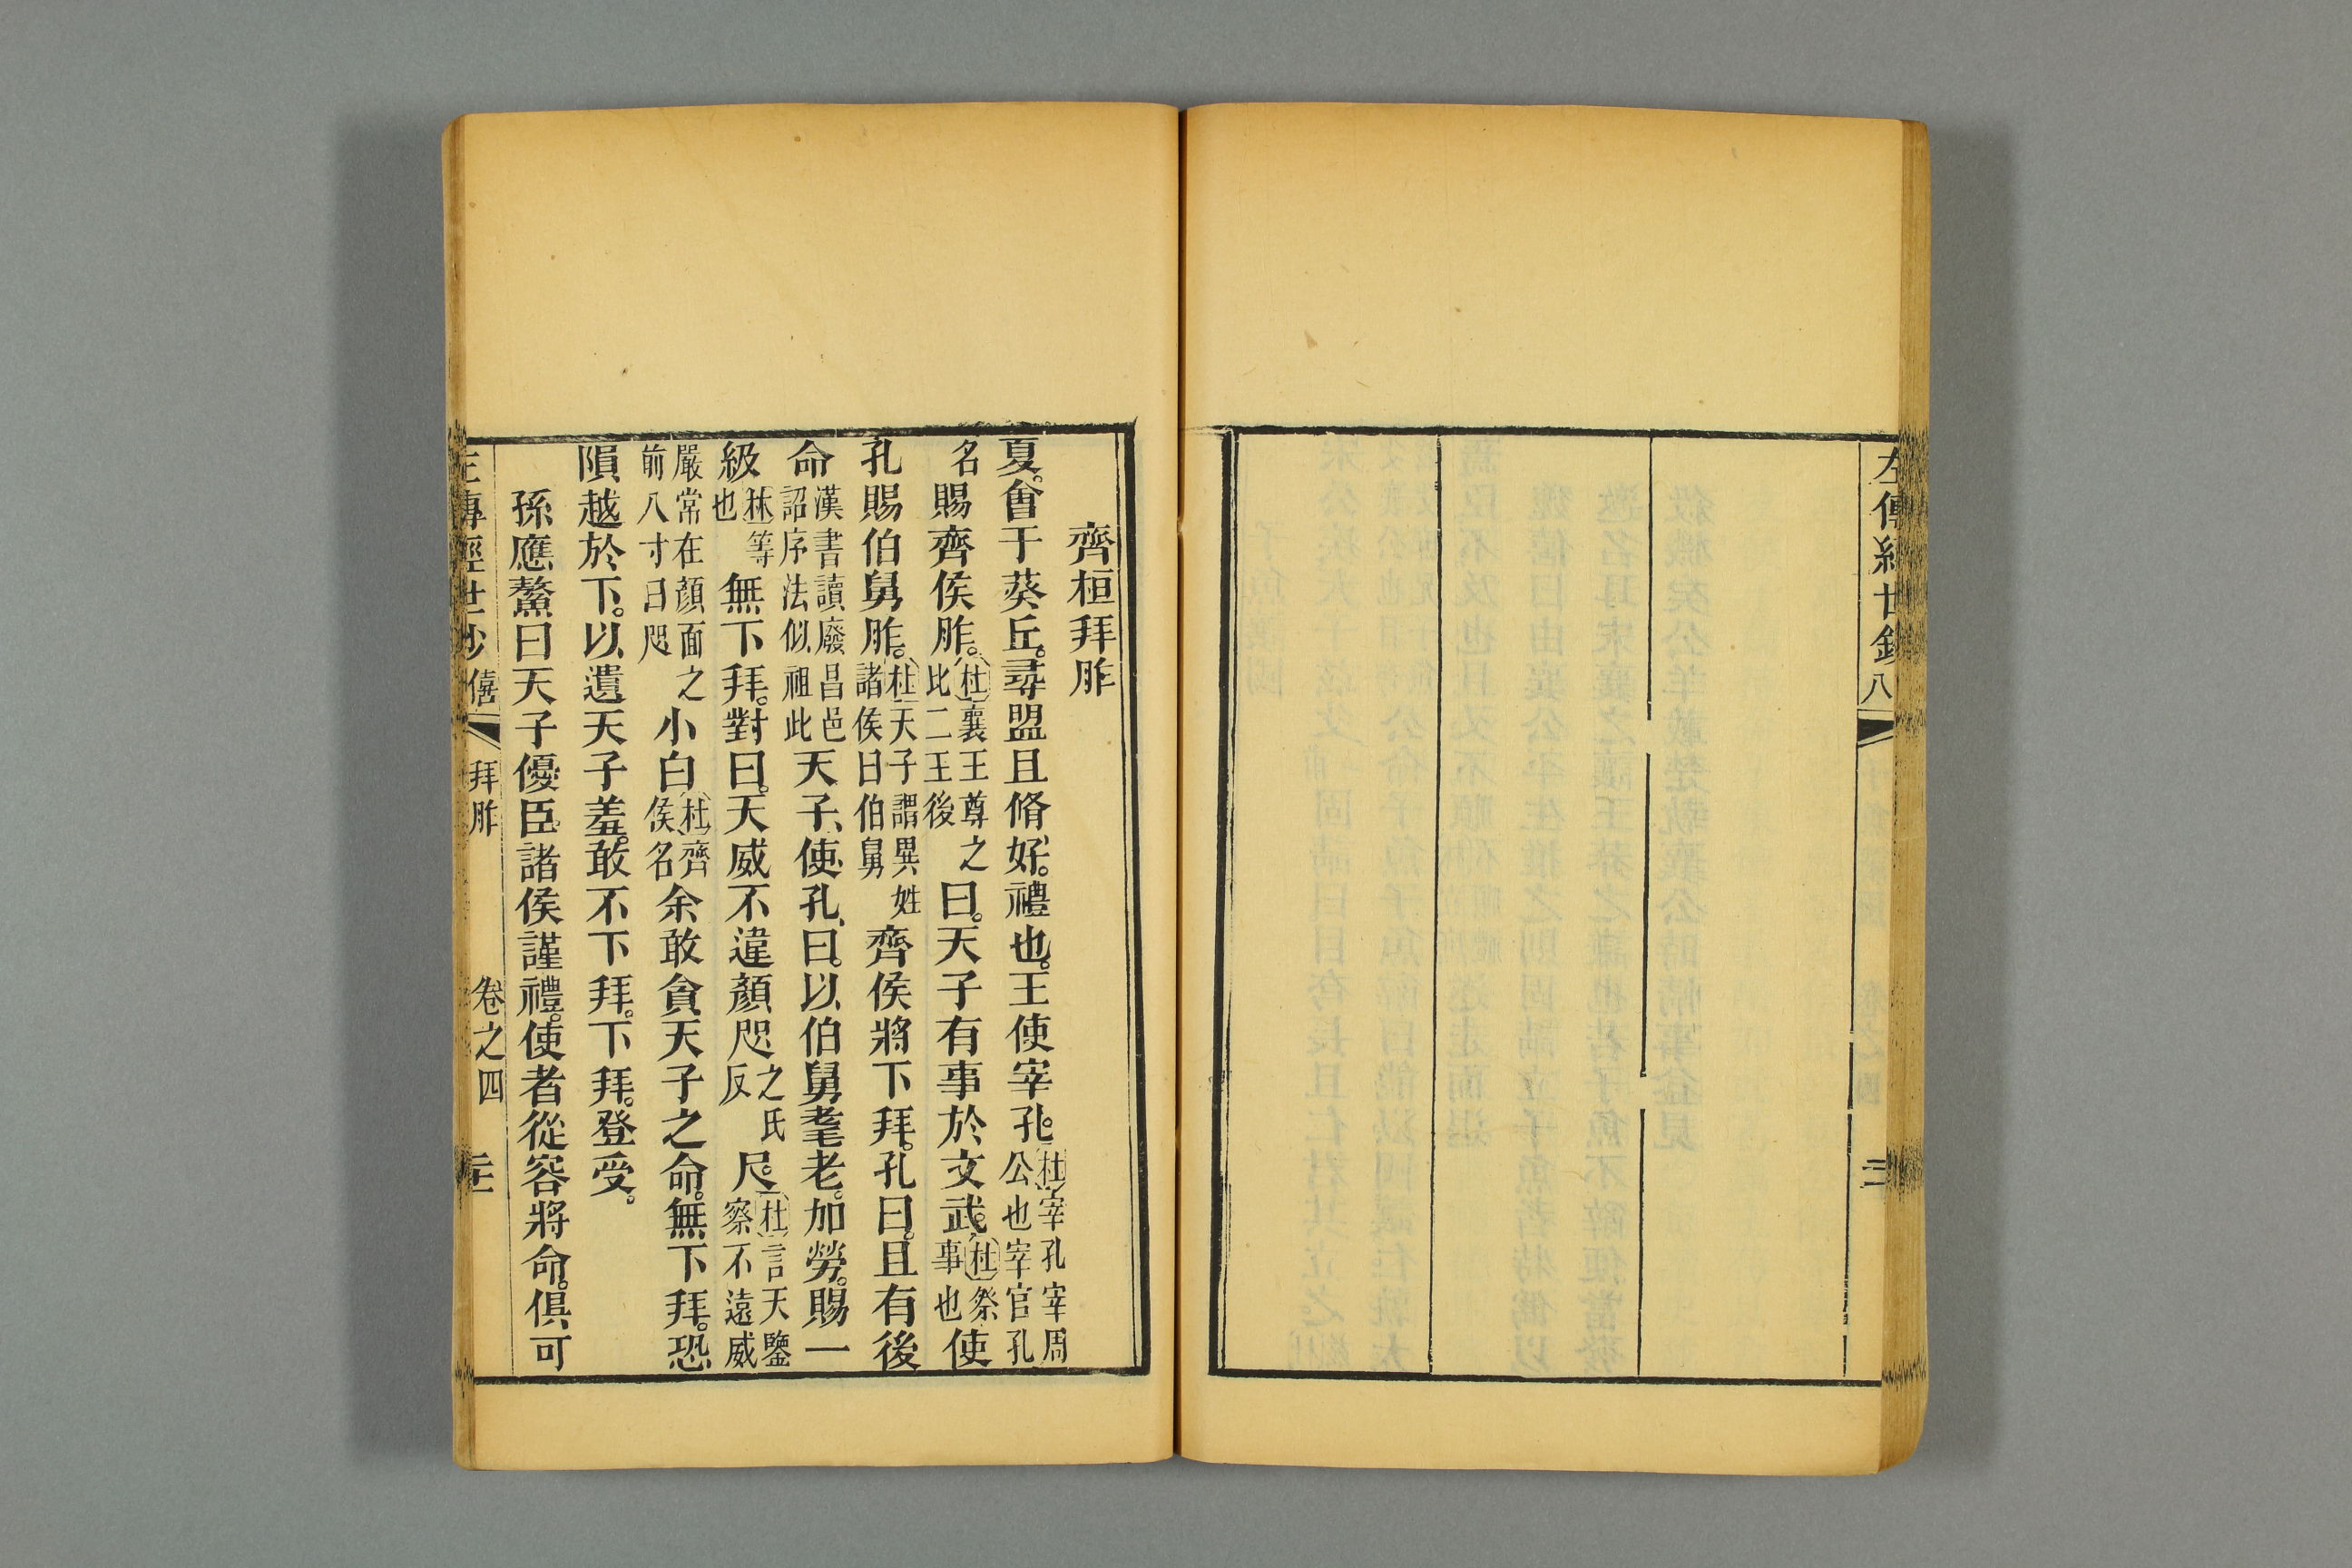 左傳經世鈔八
齊桓拜胙
夏。會于葵丘。尋盟且脩好。禮也。王使宰孔。杜宰孔宰周公也宰官孔
名賜齊侯胙。杜襄王尊之比二王後曰。天子有事於文武。杜祭事也使
孔賜伯舅胙。杜天子謂異姓諸侯曰伯舅齊侯將下拜。孔曰。且有後
命漢書讀廢昌邑詔序法似祖此天子使孔曰。以伯舅耋老。加勞。賜一
級林等也無下拜。對曰。天威不違顏咫之氏反尺。杜言天鑒察不遠威
嚴常在顏面之前八寸曰咫小白杜齊侯名余敢貪天子之命。無下拜。恐
隕越於下。以遺天子羞。敢不下拜。下拜。登受。
孫應鰲曰天子優臣諸侯謹禮。使者從容將命。俱可
左傳經世鈔 僖 拜胙 卷之四